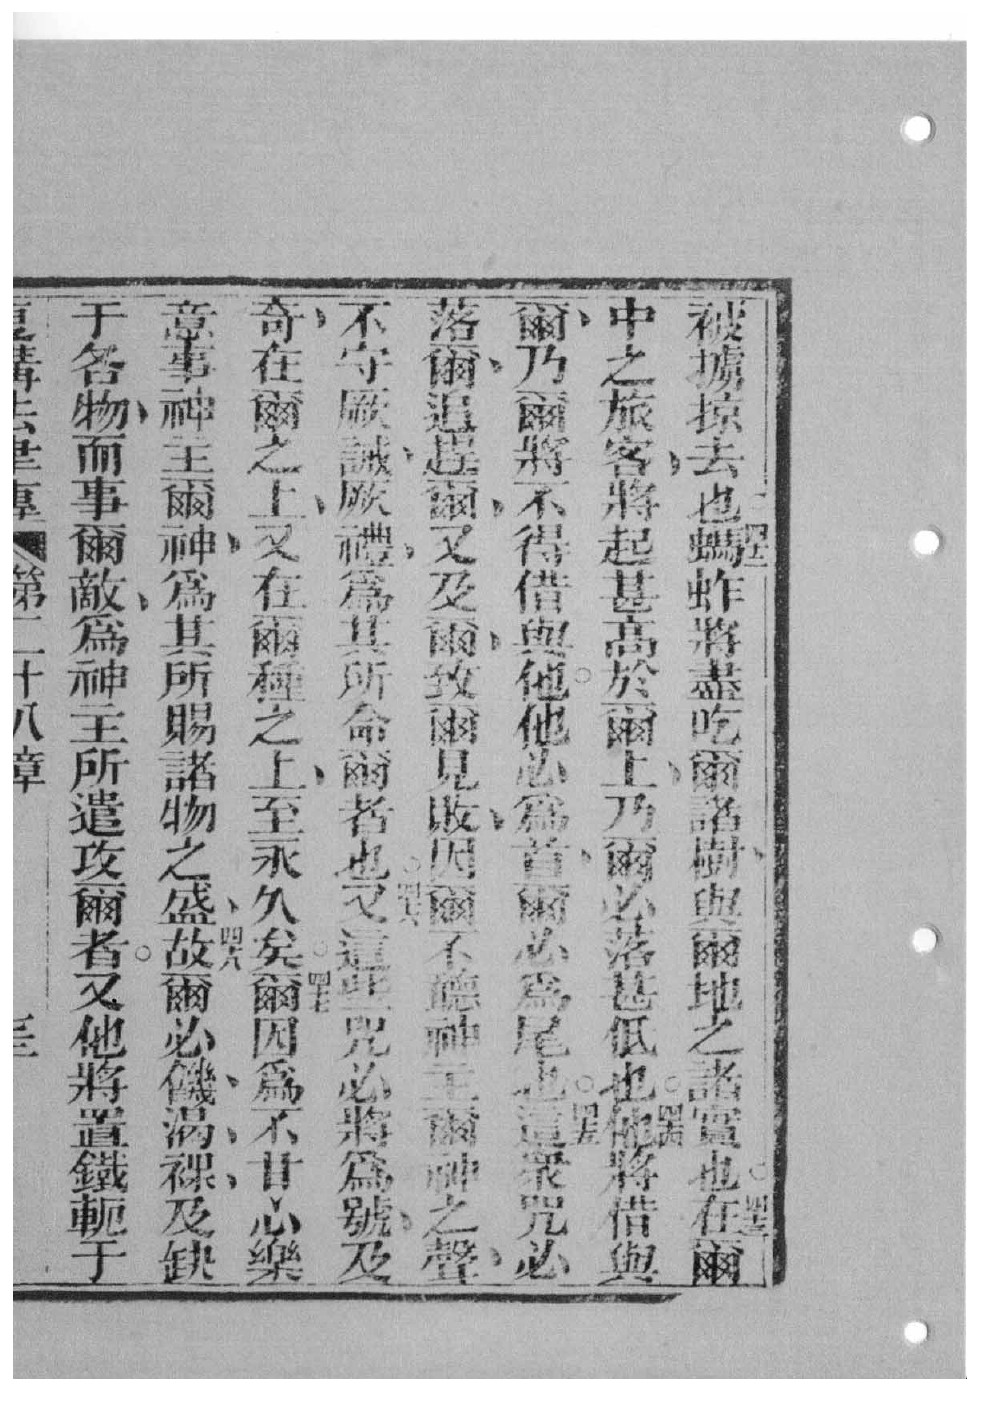 被擄掠去也四二螞蚱將盡吃爾諸樹與爾地之諸實也四三在爾
中之旅客將起甚高於爾上乃爾必落甚低也四四他將借與
爾乃爾將不得借與他他必為首爾必為尾也四五這眾咒必
落爾追趕爾又及爾致爾見敗因爾不聽神主爾神之聲
不守厥誡厥禮為其所命爾者也四六又這些咒必將為號及
奇在爾之上又在爾種之上至永久矣四七爾因為不甘心樂
意事神主爾神為其所賜諸物之盛四八故爾必饑渴裸及缺
于各物而事爾敵為神主所遣攻爾者又他將置鐵軛于
復講法律傳 第二十八章